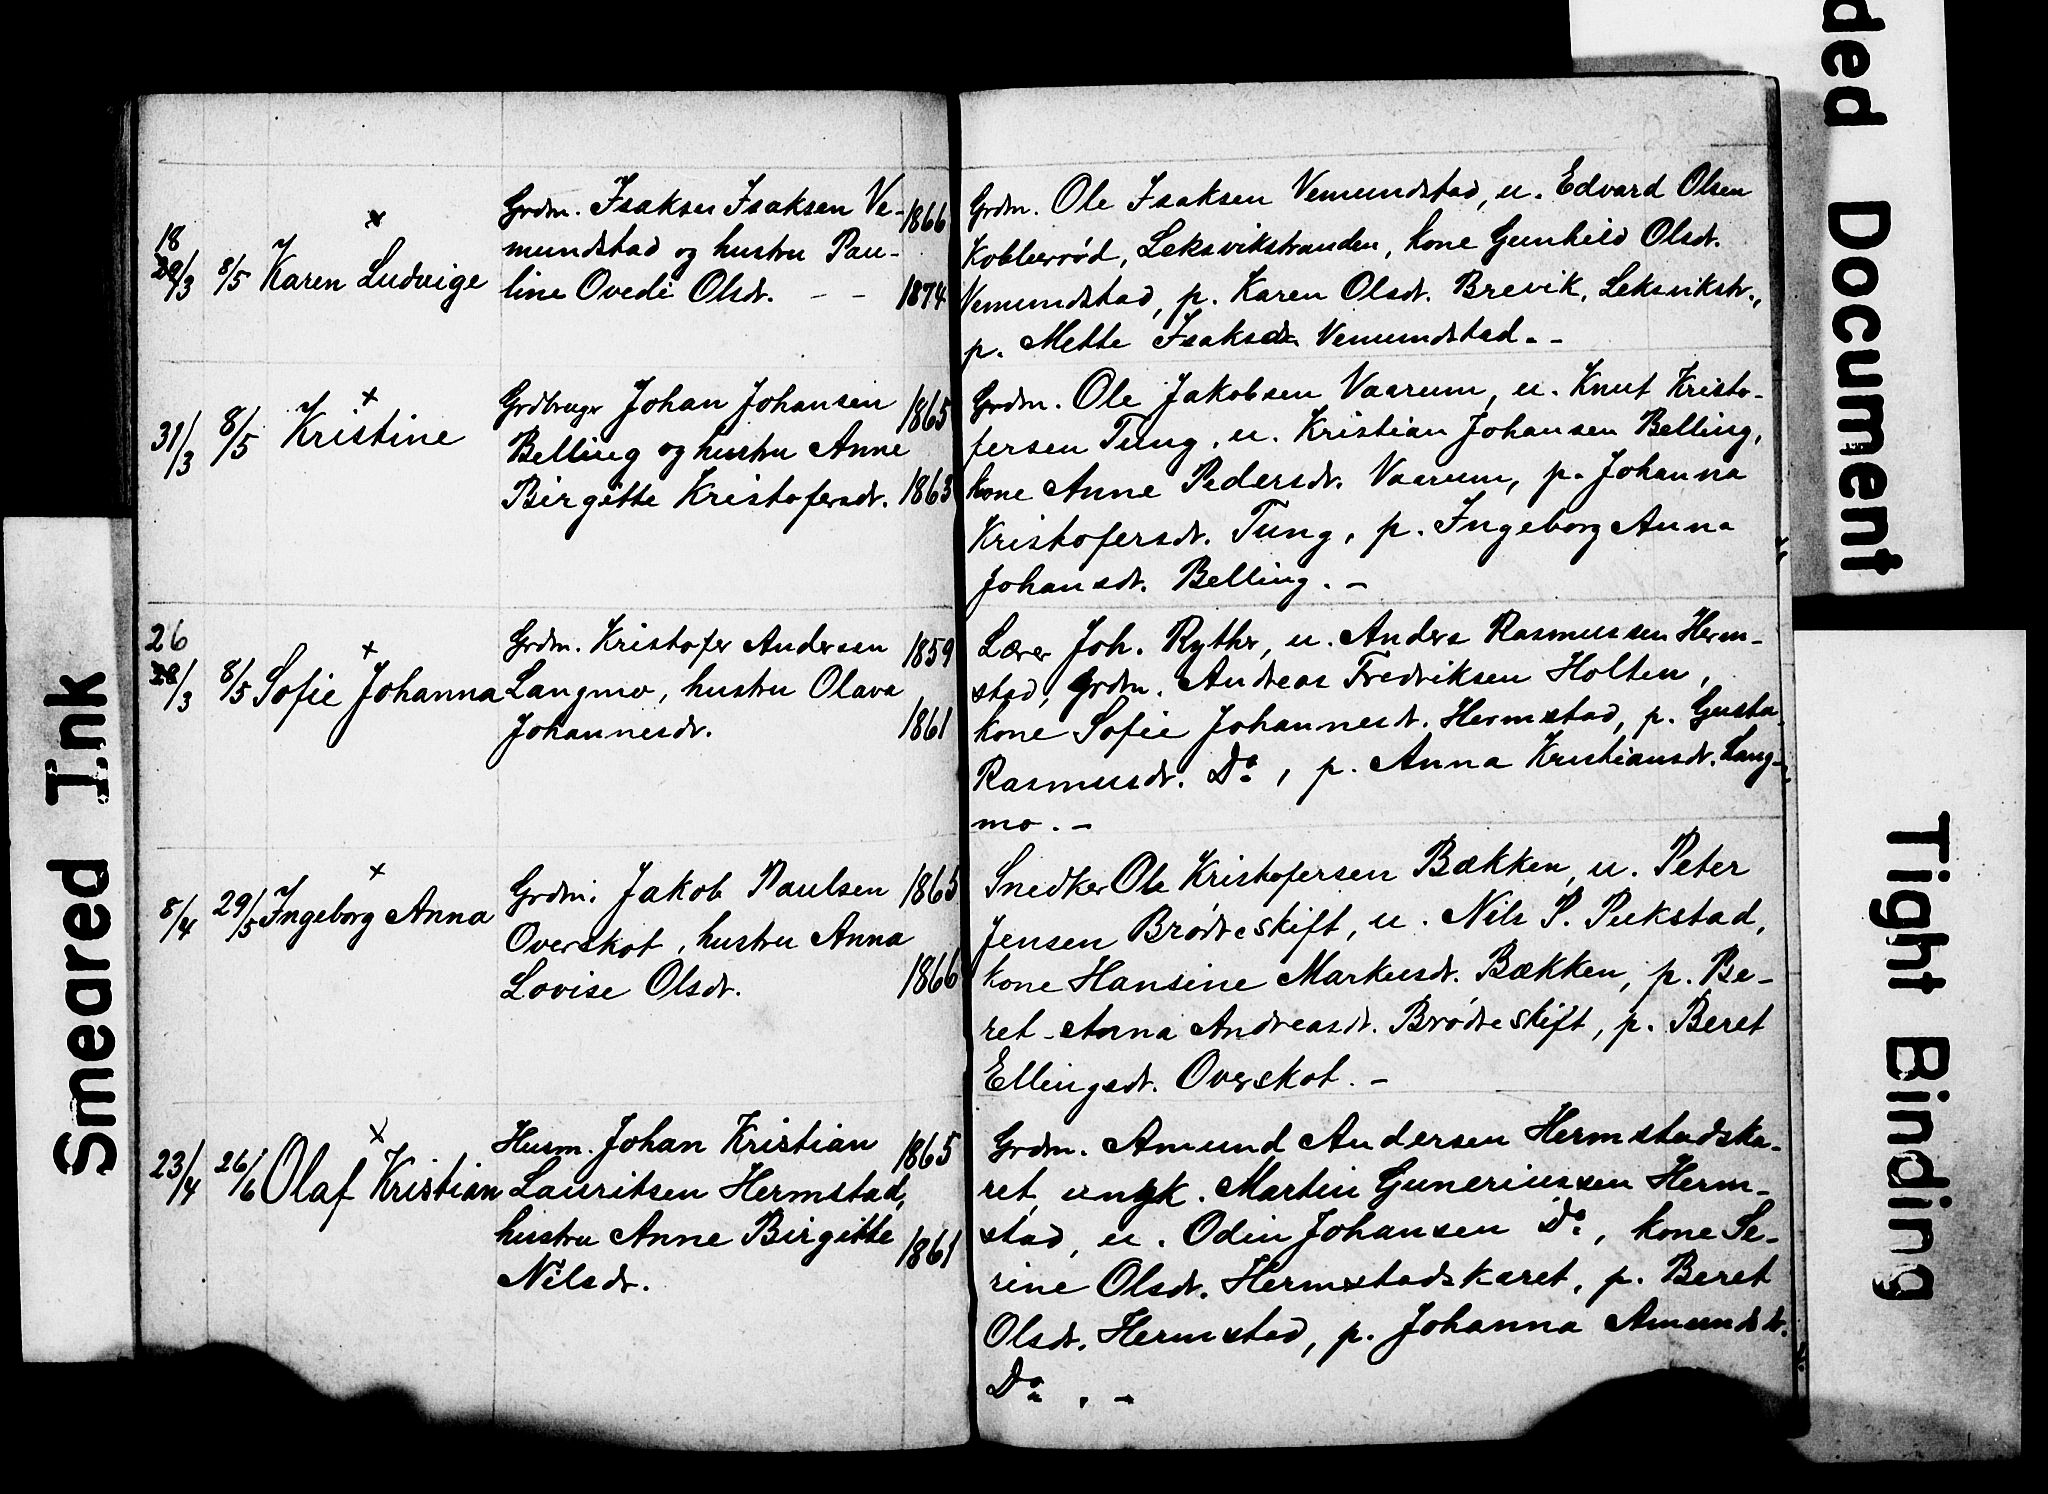 ded Document
Smeared Ink
Tight Binding
18
29/3 8/5 Karen Ludvige
Grdm. Isaksen Isaksen Ve- 1866
mundstad og hustru Pau-
line Ovedi Olsdr. - - 1874
Grdm. Ole Isaksen Vemundstad, u. Edvard Olsen
Kobberrød, Leksvikstranden, kone Gunhild Olsdr.
Vemundstad, p. Karen Olsdr. Brevik, Leksvikstr.,
p. Mette Isaksdr. Vemundstad. -
31/3 8/5 Kristine
Grdbruger Johan Johansen 1865
Belling og hustru Anne
Birgitte Kristofersdr. 1863
Grdm. Ole Jakobsen Vaarum, u. Knut Kristo-
fersen Tung, u. Kristian Johansen Belling,
kone Anne Pedersdr. Vaarum, p. Johanna
Kristofersdr. Tung, p. Ingeborg Anna
Johansdr. Belling. -
26
28/3 8/5 Sofie Johanna
Grdm. Kristofer Andersen 1859
Langmo, hustru Olava
Johannesdr. 1861
Lærer Joh. Ryther, u. Anders Rasmussen Herm-
stad, Grdm. Andreas Fredriksen Holten,
kone Sofie Johannesdr. Hermstad, p. Gusta
Rasmusdr. Do, p. Anna Kristiansdr. Lang-
mo. -
8/4 29/5 Ingeborg Anna
Grdm. Jakob Paulsen 1865
Overskot, hustru Anna
Lovise Olsdr. 1866
Snedker Ole Kristofersen Bækken, u. Peter
Jensen Brødreskift, u. Nils P. Pukstad,
kone Hansine Markusdr. Bækken, p. Be-
ret-Anna Andreasdr. Brødreskift, p. Beret
Ellingsdr. Overskot. -
23/4 26/6 Olaf Kristian
Husm. Johan Kristian 1865
Lauritsen Hermstad,
hustru Anne Birgitte 1861
Nilsdr.
Grdm. Amund Andersen Hermstadska-
ret, ungk. Martin Guneriussen Herm-
stad, u. Odin Johansen Do, kone Se-
rine Olsdr. Hermstadskaret, p. Beret
Olsdr. Hermstad, p. Johanna Amundsdr.
Do. -